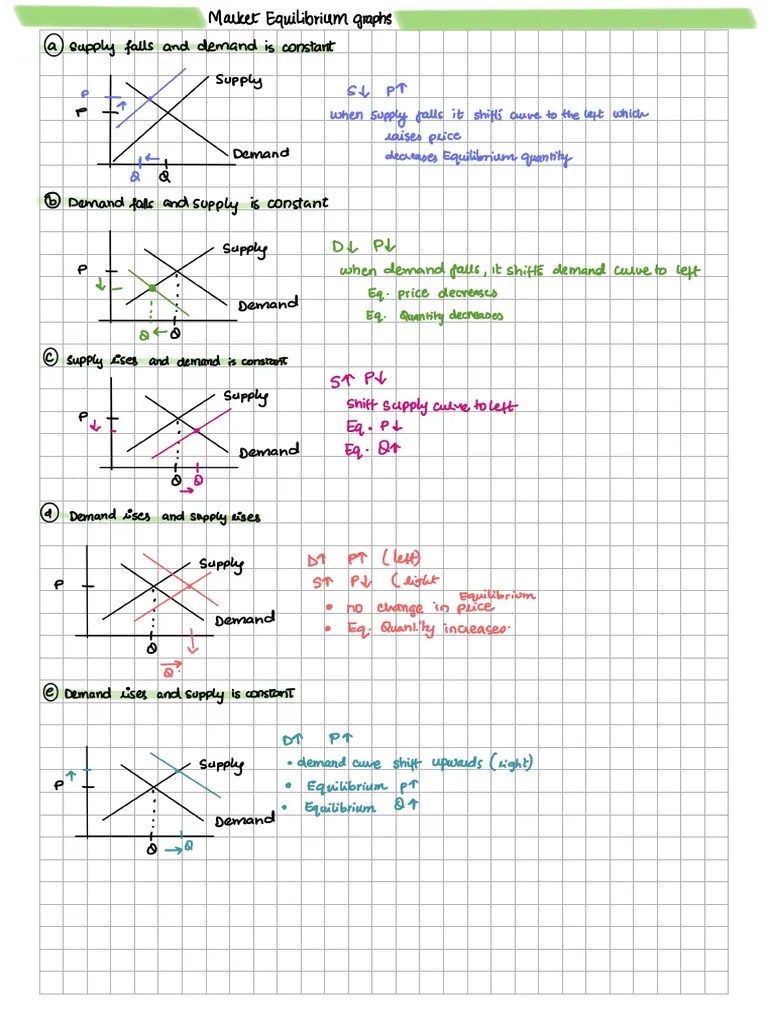 Market Equilibrium graphs
ⓐ Supply falls and demand is constant
Supply
P
P
Demand
Q ← Q
S↓ P↑
when supply falls it shifts curve to the left which
raises price
decreases Equilibrium quantity
ⓑ Demand falls and supply is constant
Supply
P
↓
Demand
Q ← Q
D↓ P↓
when demand falls, it shifts demand curve to left
Eq. price decreases
Eq. Quantity decreases
ⓒ Supply rises and demand is constant
Supply
P
↓
Demand
Q Q
→
S↑ P↓
Shift supply curve to left
Eq. P↓
Eq. Q↑
ⓓ Demand rises and supply rises
Supply
P
Demand
Q
→
Q
D↑ P↑ (left)
S↑ P↓ (right
Equilibrium
• no change in price
• Eq. Quantity increases.
ⓔ Demand rises and supply is constant
Supply
↑
P
Demand
Q → Q
D↑ P↑
• demand curve shift upwards (right)
• Equilibrium P↑
• Equilibrium Q↑